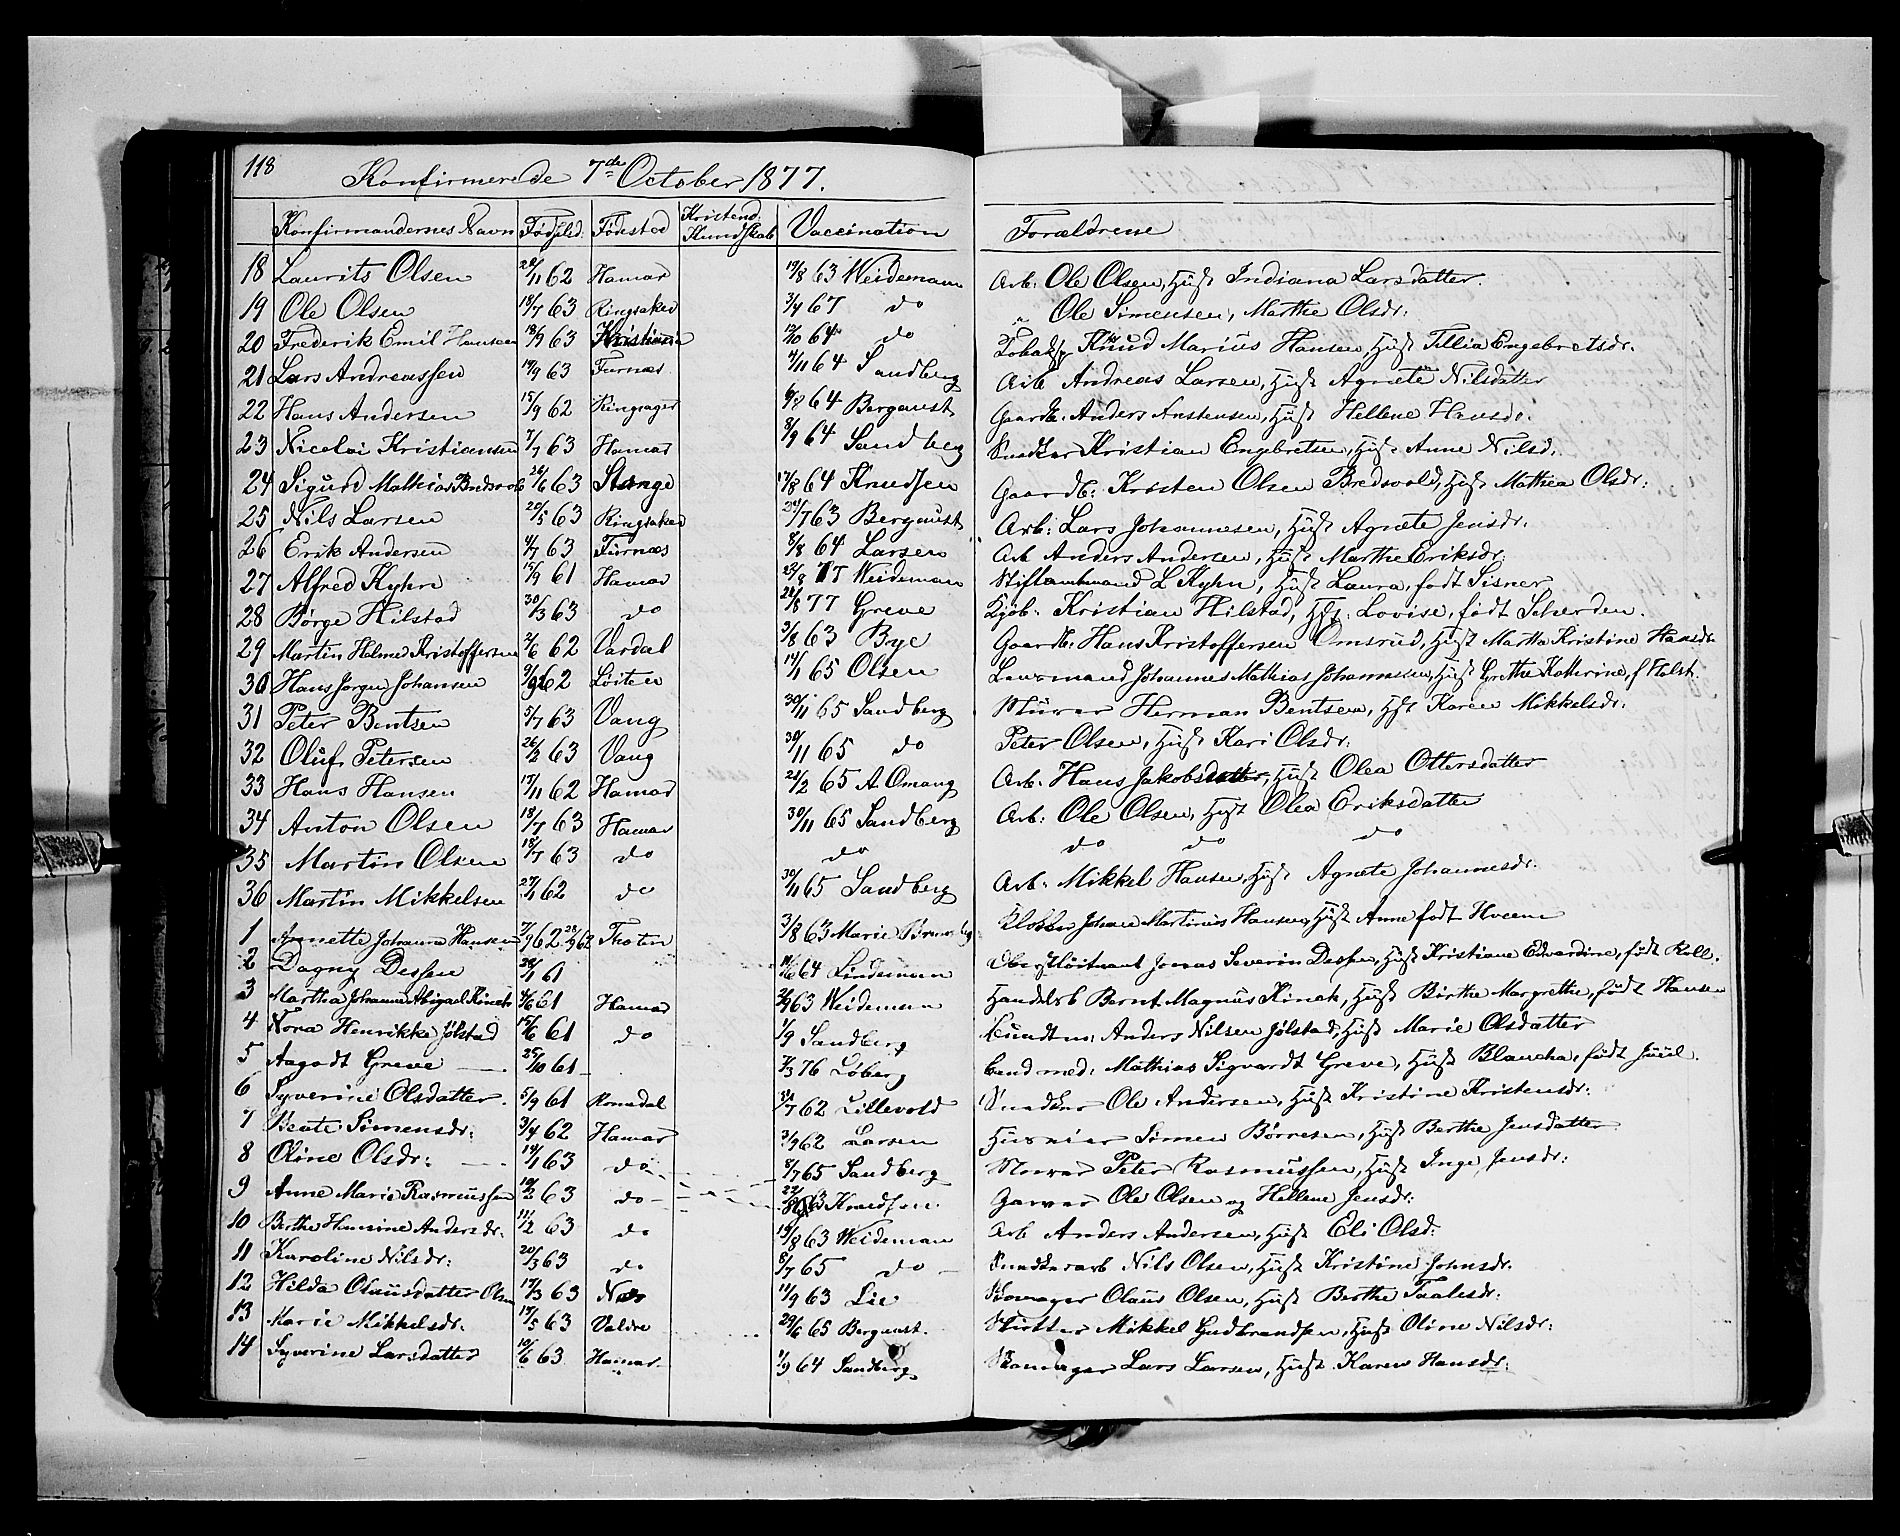 118
Konfirmerede 7de October 1877.
Konfirmandernes Navn Fødselsd: Fødested Kristend: Kundskab Vaccination Forældrene
18 Laurits Olsen 28/11 62 Hamar 19/8 63 Weideman Arb: Ole Olsen, Hust Indiana Larsdatter.
19 Ole Olsen 18/7 63 Ringsaker 3/7 67 do " Ole Simensen, Marthe Olsdr:
20 Frederik Emil Hansen 18/9 63 Kristiania 12/10 64 do Knud Marius Hansen, Hust Tillia Engebretsdr.
21 Lars Andreassen 19/9 63 Furnæs 4/11 64 Sandberg Arb Andreas Larsen, Hust Agnete Nilsdatter
22 Hans Andersen 15/9 62 Ringsager 64 Bergqust Gaardb: Anders Anstensen, Hust Hellene Hansdr.
23 Nicolai Kristiansen 7/7 63 Hamar 8/9 64 Sandberg Snedker Kristian Engebretsen, Hust. Anne Nilsd.
24 Sigurd Mathias Bredsvold 26/6 63 Stange 17/8 64 Knudsen Gaardb: Kristen Olsen Bredsvold, Hust Mathea Olsdr:
25 Nils Larsen 20/5 63 Ringsaker 21/7 63 Bergqust Arb: Lars Johannesen, Hust Agnete Jensdr.
26 Erik Andersen 4/7 63 Furnæs 8/8 64 Larsen Arb Anders Andersen, Hust Marthe Eriksdr:
27 Alfred Kyhn 15/9 61 Hamar 23/8 Weideman Stiftamtmand L Kyhn, Hust Laura, født Sisner
28 Børge Hilstad 30/3 63 do 28/8 77 Greve Kjøb: Kristian Hilstad, Hust: Lovise, født Scherden.
29 Martin Helmer Kristoffersen 2/6 62 Vardal 3/8 63 Bye Gaardb: Hans Kristoffersen Omsrud, Hust Martha Kristine Hansdr.
30 Hans Jørgen Johansen 62 Løiten 14/1 65 Olsen Lensmand Johannes Mathias Johannesen, Hust Grethe Katherine, f Holst.
31 Peter Bentsen 5/7 63 Vang 30/11 65 Sandberg Herman Bentsen, Hust Karen Mikkelsdr.
32 Oluf Petersen 26/2 63 Vang 30/11 65 do Peter Olsen, Hust Kari Olsdr:
33 Hans Hansen 17/11 62 Hamar 21/2 65 A. Omang Arb. Hans Jakobsdatter, Hust Olea Ottersdatter
34 Anton Olsen 18/7 63 Hamar 30/11 65 Sandberg Arb: Ole Olsen, Hust Olea Eriksdatter
35 Martin Olsen 18/7 63 do do do do do
36 Martin Mikkelsen 27/1 62 do 30/11 65 Sandberg Arb: Mikkel Hansen, Hust Agnete Johannesdr:
1 Annette Johanna Hansen 62 Thoten 3/8 63 Marie Klokker Johan Martinus Hansen, Hust Anne født Hveem
2 Dagny Dessen 28/1 61 64 Lindeman Jonas Severin Dessen, Hust Kristiane Edvardine, født Roll.
3 Martha Johanne Abigael Kinck 4/6 61 Hamar 63 Weideman Handelsb Bernt Magnus Kinck, Hust Birthe Margrethe, født Hansen
4 Nora Henrikke Jølstad 15/6 61 do 1/9 Sandberg Anders Nilsen Jølstad, Hust Marie Olsdatter
5 Aagodt Greve 25/10 61 7/3 76 Løberg Cand med: Mathias Sigvardt Greve, Hust Blancha, født Juul.
6 Syverine Olsdatter. 5/9 61 Romedal 62 Lillevold Snedker Ole Andersen, Hust Kristine Kristensdr:
7 Beate Simensdr: 3/4 62 Hamar 3/9 62 Larsen Simen Børresen, Hust Berthe Jensdatter
8 Oline Olsdr: 14/1 63 do 8/7 65 Sandberg Peter Rasmussen, Hust Inge Jensdr:
9 Anne Marie Rasmussen 19/2 63 do Knudsen Garver Ole Olsen og Hellene Jensdr:
10 Berthe Hansine Andersdr. 11/2 63 do 19/8 63 Weideman Arb Anders Andersen, Hust Eli Olsd:
11 Karoline Nilsdr: 20/3 63 do 8/7 65 do Snedkerarb Nils Olsen, Hust Kristine Johnsdr.
12 Hilda Olausdatter Olsen 17/3 63 Næs 11/9 63 Lie Skomager Olaus Olsen, Hust Berthe Taalesdr:
13 Marie Mikkelsdr. 17/5 63 Valdre 29/6 65 Bergqust. Mikkel Gudbrandsen, Hust Oline Nilsdr:
14 Syverine Larsdatter 12/6 63 Hamar 1/9 64 Sandberg Skomager Lars Larsen, Hust Karen Hansdr: